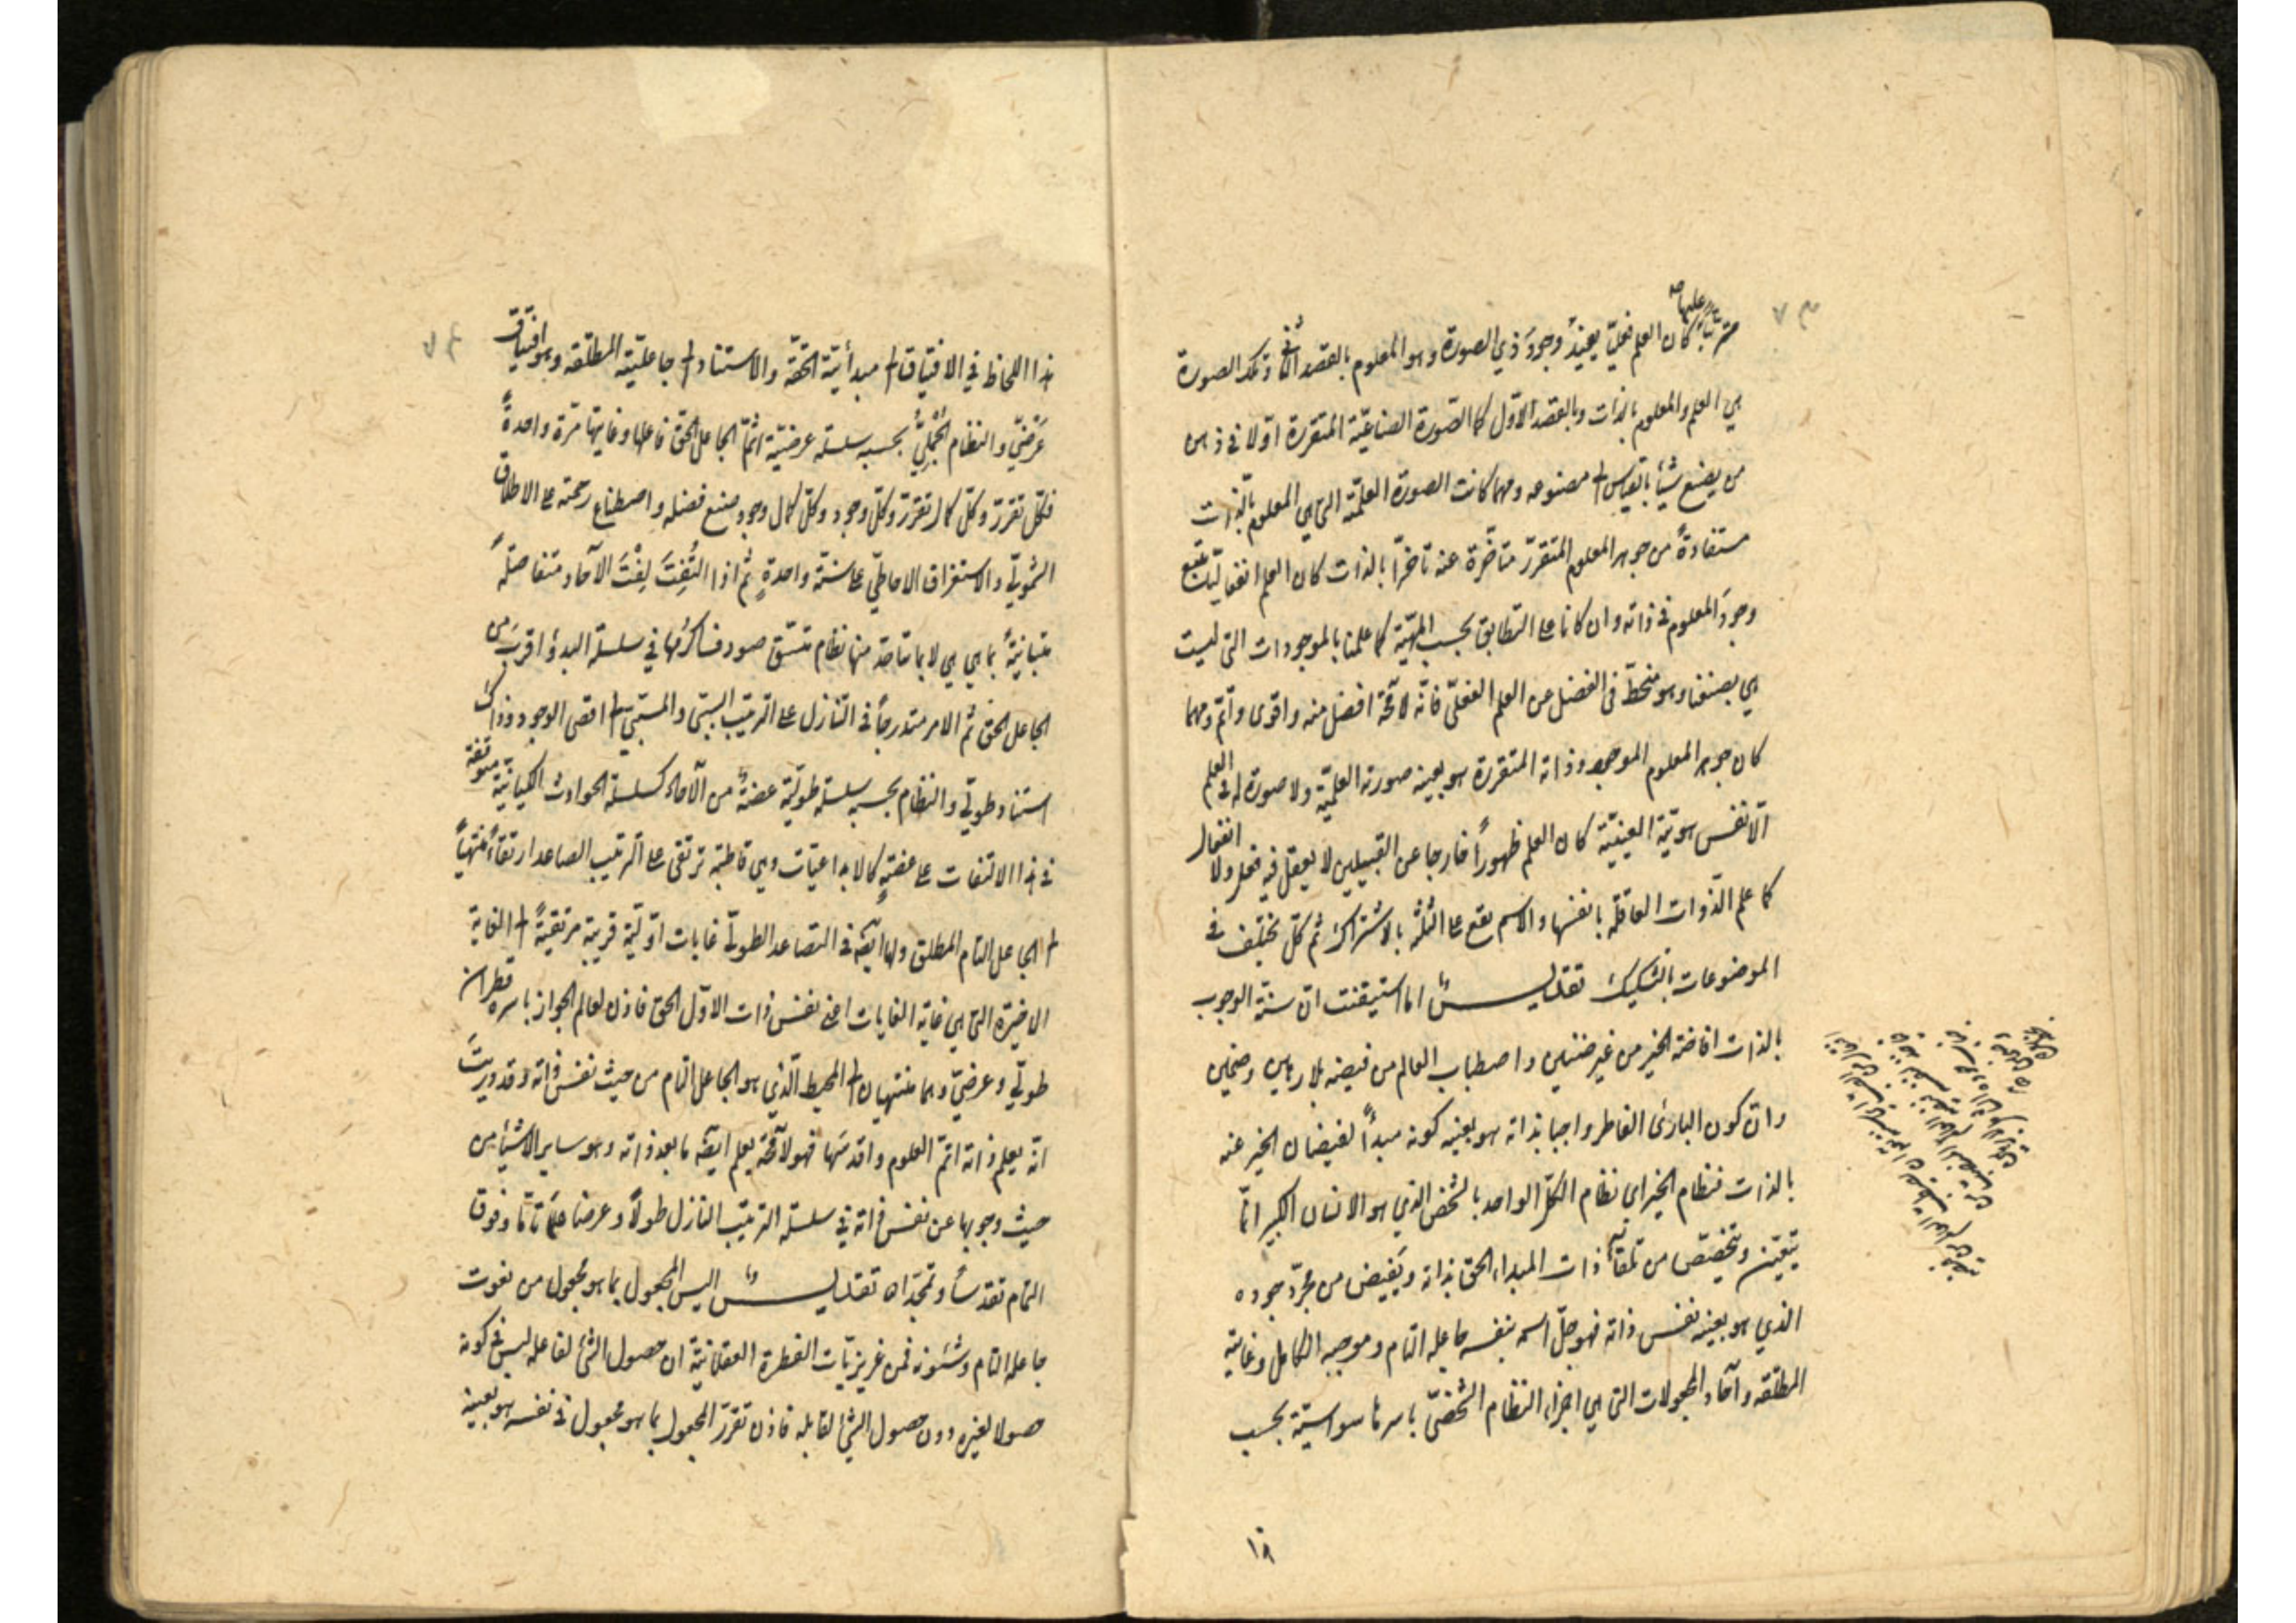 ٧٣
عليها
مترتبا كان العلم فعليّا يعيّنه وجود ذي الصورة وهو المعلوم بالقصد الثاني وتلك الصورة
هي العلم والمعلوم بالذات وبالقصد الاوّل كالصورة الصناعيّة المتقررة اوّلا في ذهن
من يصنع شيئا بالقياس الى مصنوعه ومهما كانت الصورة العلميّة التي هي المعلوم بالذات
مستفادةً من جوهر المعلوم المتقرر متاخّرة عنه تاخّرا بالذات كان العلم انفعاليّا يتبع
وجودَ المعلوم في ذاته وان كانا على التطابق بحسب المهيّة كما علمنا بالموجودات التي ليست
هي بصنعنا وهو منحطّ في الفضل عن العلم الفعليّ فانّه لا محة افضل منه واقوى واتمّ ومهما
كان جوهر المعلوم الموجود وذاته المتقررة هو بعينه صورته العلميّة ولا صورة له في العلم
الّا نفس هويّته العينيّة كان العلم ظهوراً خارجا عن القبيلين لا يعقل فيه فعل ولا انفعال
كما علم الذّوات العاقلة بانفسها والاسم يقع على الثلثة بالاشتراك ثم كلّ يختلف في
الموضوعات بالتشكيك تقديسٌ اما استيقنت انّ سنّة الوجوب
بالذات افاضة الخير من غير ضنين واصطباب العالم من فيضه بلا رهين وضمين
وانّ كون البارئ الفاطر واجبا بذاته هو بعينه كونه مبدأً لفيضان الخير عنه
بالذات فنظام الخير اي نظام الكلّ الواحد بالشخص الذي هو الانسان الكبير انّما
يتعيّن ويتخصّص من تلقاء ذات المبداء الحق بذاته ويَفيض من مجرّد جوده
الذي هو بعينه نفس ذاته فهو جلّ اسمه بنفسه جاعله التام وموجبه الكامل وغايته
المطلقه وآحاد المجعولات التي هي اجزاء النظام الشخصيّ باسرها سواسيّة بحسب
١٨
٧٤
هذا اللحاظ في الافتياق الى مبدأيّته الحقّة والاستناد الى جاعليّته المطلقه وهو افتياق
عَرْضيّ والنظام الجُمْليّ بحسبه سلسلة عرضيّة انّما الجاعل الحق فاعلها وغايتها مرّة واحدةً
فكلّ تقرر وكلّ كمال تقرر وكلّ وجود وكلّ كمال وجود صنع فضله واصطناع رحمته على الاطلاق
الشموليّ والاستغراق الاحاطيّ على سنّة واحدةٍ ثم اذا التُفِتَ لِفْتَ الآحاد متفاصلةً
متباينةً بما هي هي لا بما تاحد منها نظام متّسق صودف اكرمُها في سلسلة البدؤ اقربَ من
الجاعل الحق ثم الامر متدرجاً في التنازل على الترتيب السببيّ والمسببيّ الى اقصى الوجود وذاك
استناد طوليّ والنظام بحسبه سلسلة طوليّة عضةً من الآحاد كسلسلة الحوادث الكيانيّة متوقفة
في هذا الالتفات على عضةٍ كالابداعيّات وهي قاطبةً ترتقى على الترتيب الصاعد ارتقاءً منتهياً
الى الجاعل التام المطلق ولها ايضا في التصاعد الطوليّ غايات اوّليّة قريبة مرتقيةً الى الغاية
الاخيرة التي هي غاية الغايات اعني نفس ذات الاوّل الحق فاذن لعالم الجواز باسره قطران
طوليّ وعرضيّ وهما منتهيان الى المحيط الّذي هو الجاعل التام من حيث نفس ذاته وقد دريتَ
انّه يعلم ذاته اتمّ العلوم واقدسَها فهو لا محة يعلم ايضا ما بعد ذاته وهو ساير الاشياء من
حيث وجوبها عن نفس ذاته في سلسلة الترتيب النازل طولاً وعرضا علماً تامّا وفوق
التمام تقدّساً وتمجّداً تقديسٌ اليس المجعول بما هو مجعول من نعوت
جاعله التام وشئونه فمن غريزيّات الفطرة العقلانيّة ان حصول الشئ لفاعله ليس في كونه
حصولا لغيره دون حصول الشئ لقابله فاذن تقرّر المجعول بما هو مجعول في نفسه هو بعينه